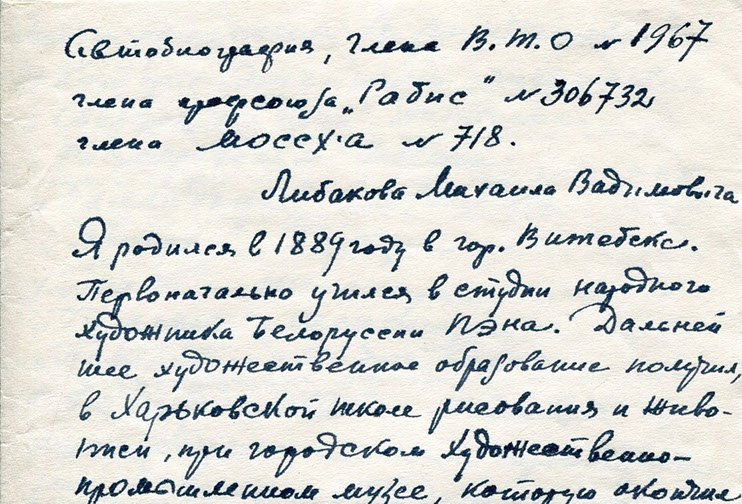 Автобиография, члена В.Т.О № 1967
члена профсоюза „Рабис" № 306732
члена МОССХ'а № 718.
Либакова Михаила Вадимовича
Я родился в 1889 году в гор. Витебске.
Первоначально учился в студии народного
художника Белоруссии Пэна. Дальней
шее художественное образование получил,
в Харьковской школе рисования и живо-
писи, при городском художественно-
промышленном музее, которую окончил